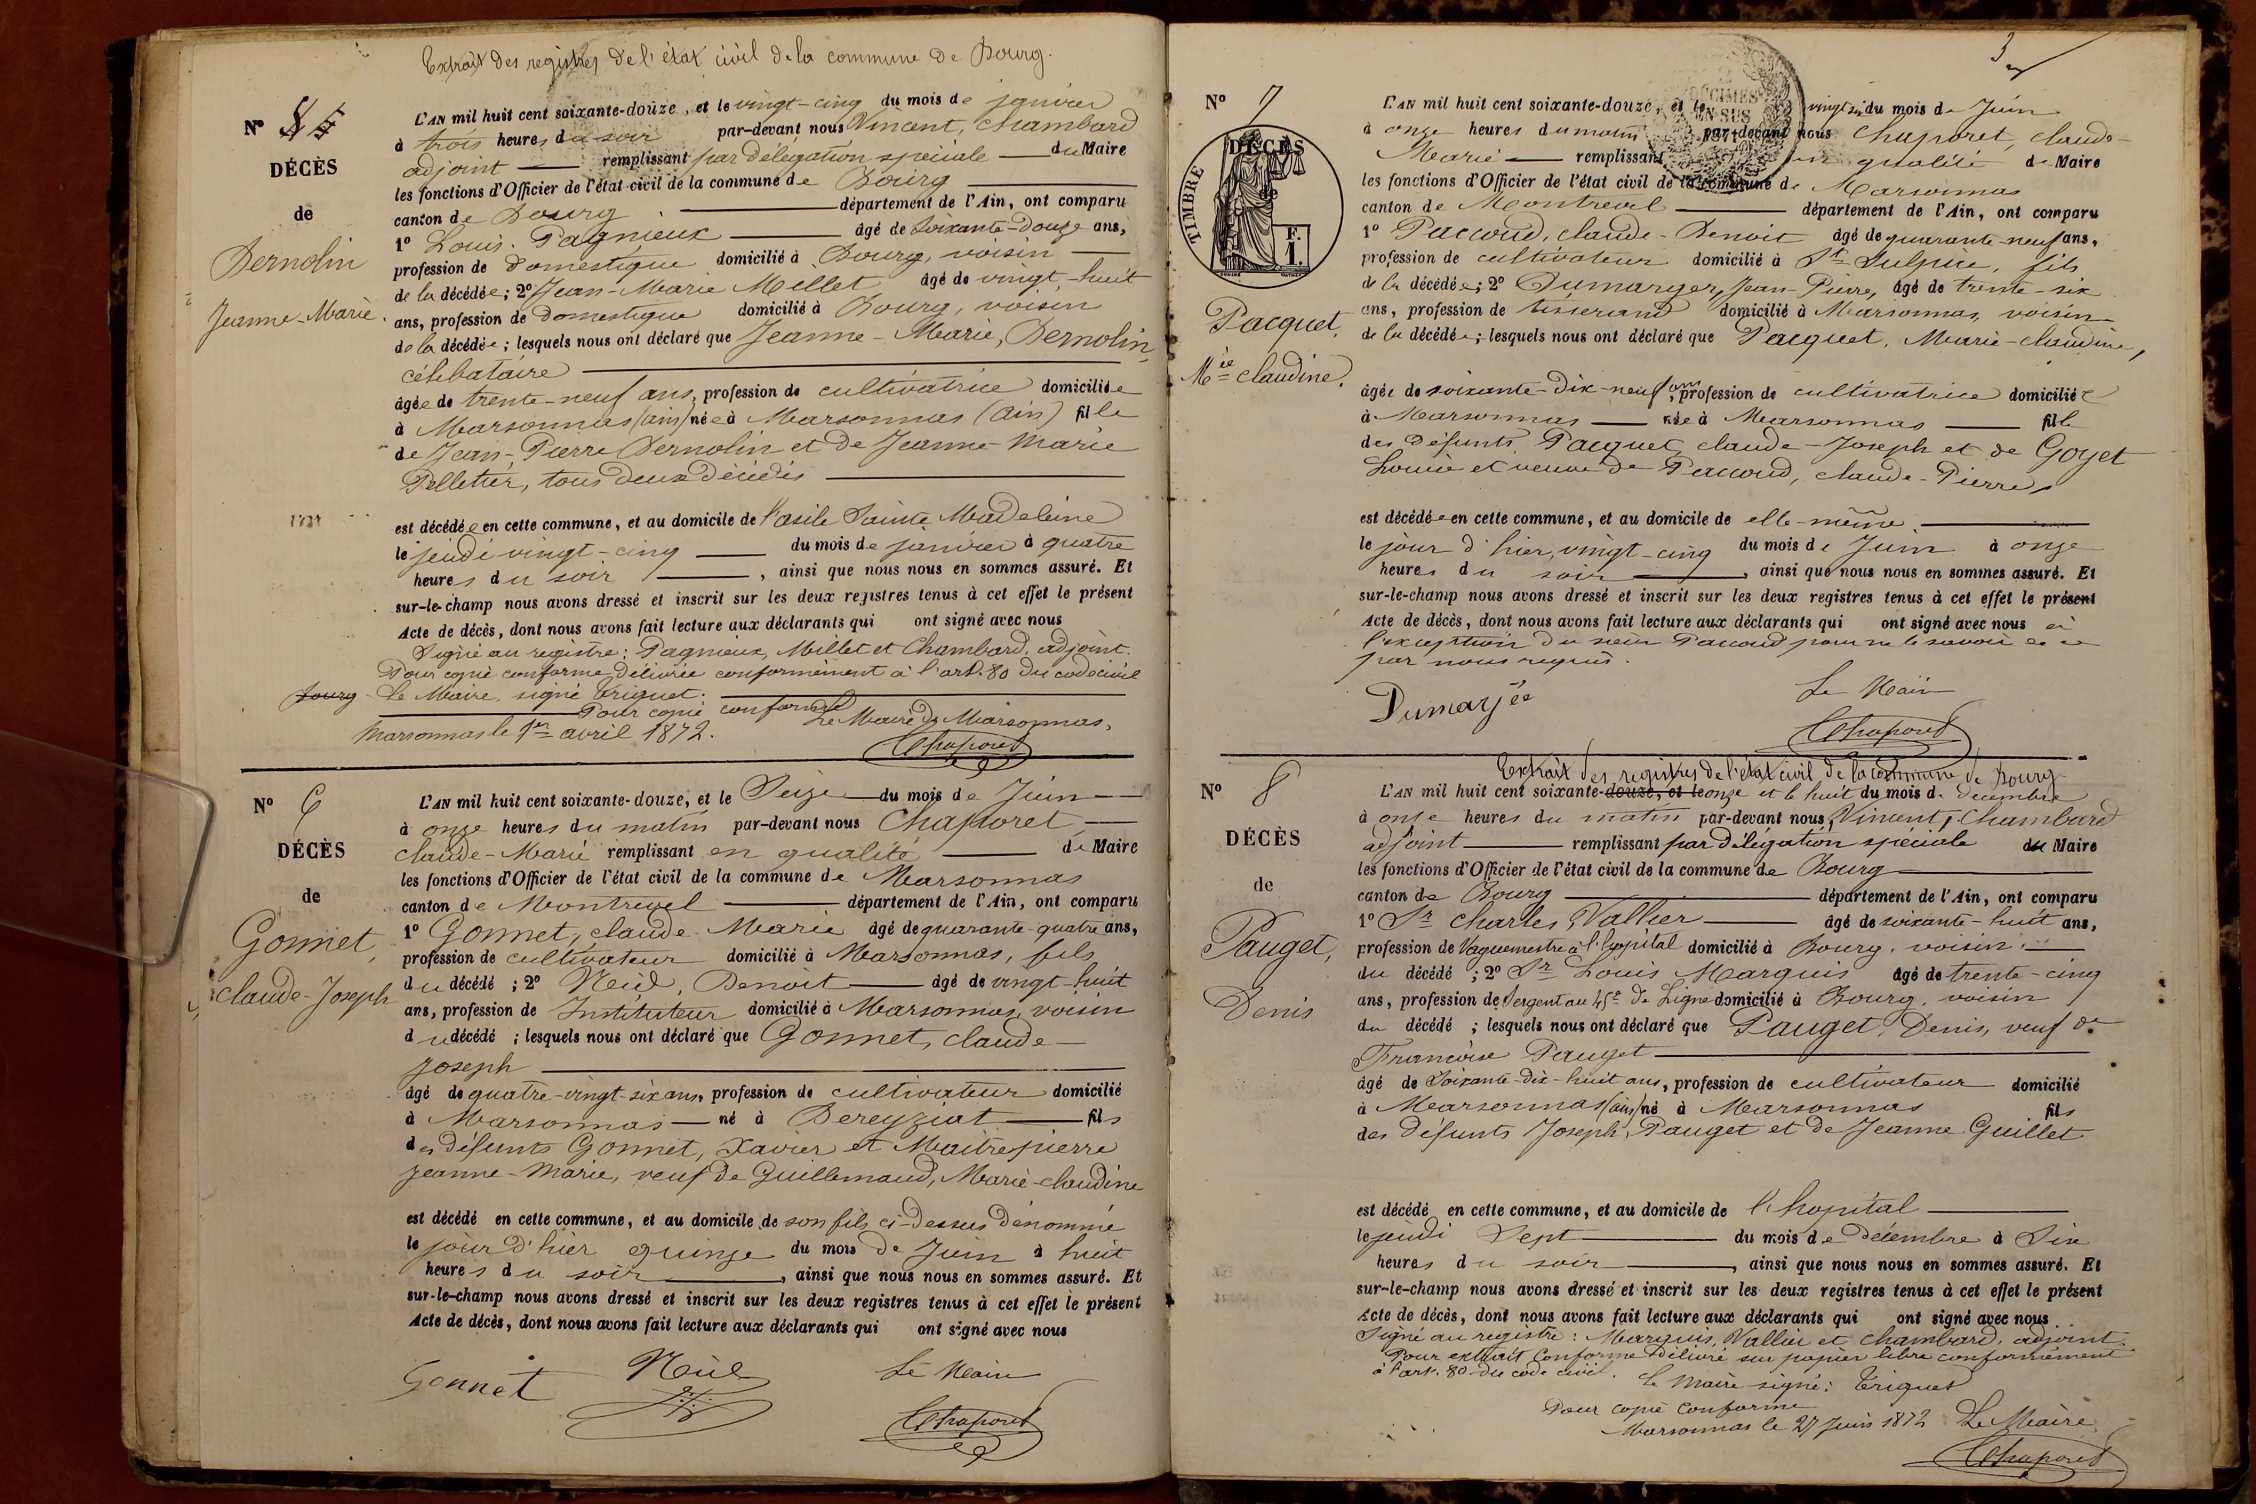 Extrait des registres de l'état civil de la commune de Bourg.
N° 5
DÉCÈS
de
Bernolin
Jeanne-Marie.
L'AN mil huit cent soixante-douze, et le vingt-cinq du mois de janvier
à trois heures du soir par-devant nous Vincent, Chambard
adjoint remplissant par délégation spéciale du Maire
les fonctions d'Officier de l'état civil de la commune de Bourg
canton de Bourg département de l'Ain, ont comparu
1° Louis Pagnieux âgé de soixante-douze ans,
profession de domestique domicilié à Bourg, voisin
de la décédée; 2° Jean-Marie Millet âgé de vingt-huit
ans, profession de domestique domicilié à Bourg, voisin
de la décédée; lesquels nous ont déclaré que Jeanne-Marie, Bernolin,
célibataire
âgée de trente-neuf ans, profession de cultivatrice domiciliée
à Marsonnas (ain) née à Marsonnas (Ain) fille
de Jean-Pierre Bernolin et de Jeanne-Marie
Pelletier, tous deux décédés
est décédée en cette commune, et au domicile de l'asile Sainte Madeleine
le jeudi vingt-cinq du mois de janvier à quatre
heures du soir, ainsi que nous nous en sommes assuré. Et
sur-le-champ nous avons dressé et inscrit sur les deux registres tenus à cet effet le présent
Acte de décès, dont nous avons fait lecture aux déclarants qui ont signé avec nous
Signé au registre: Pagnieux, Millet et Chambard, adjoint.
Pour copie conforme délivrée conformément à l'art. 80 du code civil
Bourg Le Maire signé Triquet.
Pour copie conforme
Marsonnas le 1er avril 1872. Le Maire de Marsonnas,
Chaporet
N° 6
DÉCÈS
de
Gonnet,
Claude-Joseph
L'AN mil huit cent soixante-douze, et le Seize du mois de Juin
à onze heures du matin par-devant nous Chaporet,
Claude-Marie remplissant en qualité de Maire
les fonctions d'Officier de l'état civil de la commune de Marsonnas
canton de Montrevel département de l'Ain, ont comparu
1° Gonnet, Claude Marie âgé de quarante-quatre ans,
profession de cultivateur domicilié à Marsonnas, fils
du décédé; 2° Niel, Benoit âgé de vingt-huit
ans, profession de Instituteur domicilié à Marsonnas, voisin
du décédé; lesquels nous ont déclaré que Gonnet, Claude-
Joseph
âgé de quatre-vingt-six ans, profession de cultivateur domicilié
à Marsonnas né à Béreyziat fils
des défunts Gonnet, Xavier et Maitrepierre
Jeanne-Marie, veuf de Guillemaud, Marie-Claudine
est décédé en cette commune, et au domicile de son fils ci-dessus dénommé
le jour d'hier quinze du mois de Juin à huit
heures du soir, ainsi que nous nous en sommes assuré. Et
sur-le-champ nous avons dressé et inscrit sur les deux registres tenus à cet effet le présent
Acte de décès, dont nous avons fait lecture aux déclarants qui ont signé avec nous
Gonnet Niel Le Maire
Chaporet
3
N° 7
DÉCÈS
de
TIMBRE
F.
1.
Pacquet,
Mie Claudine.
L'AN mil huit cent soixante-douze, et le vingt six du mois de Juin
à onze heures du matin par-devant nous Chaporet, Claude-
Marie remplissant en qualité de Maire
les fonctions d'Officier de l'état civil de la commune de Marsonnas
canton de Montrevel département de l'Ain, ont comparu
1° Paccoud, Claude-Benoit âgé de quarante-neuf ans,
profession de cultivateur domicilié à St Sulpice, fils
de la décédée; 2° Dumarger, Jean-Pierre, âgé de trente-six
ans, profession de tisserand domicilié à Marsonnas, voisin
de la décédée; lesquels nous ont déclaré que Pacquet, Marie-Claudine,
âgée de soixante-dix-neuf ans, profession de cultivatrice domiciliée
à Marsonnas née à Marsonnas fille
des défunts Pacquet, Claude-Joseph et de Goyet
Louise et veuve de Paccoud, Claude-Pierre,
est décédée en cette commune, et au domicile de elle-même.
le jour d'hier, vingt-cinq du mois de Juin à onze
heures du soir, ainsi que nous nous en sommes assuré. Et
sur-le-champ nous avons dressé et inscrit sur les deux registres tenus à cet effet le présent
Acte de décès, dont nous avons fait lecture aux déclarants qui ont signé avec nous à
l'exception du sieur Paccoud pour ne le savoir de ce
par nous requis.
Dumarjée Le Maire
Chaporet
Extrait des registres de l'état civil de la commune de Bourg
N° 8
DÉCÈS
de
Pauget,
Denis
L'AN mil huit cent soixante-douze, et le onze et le huit du mois de décembre
à onze heures du matin par-devant nous, Vincent, Chambard
adjoint remplissant par délégation spéciale du Maire
les fonctions d'Officier de l'état civil de la commune de Bourg
canton de Bourg département de l'Ain, ont comparu
1° Sr Charles Vallier âgé de soixante-huit ans,
profession de Vaguemestre à l'hopital domicilié à Bourg, voisin
du décédé; 2° Sr Louis Marquis âgé de trente-cinq
ans, profession de Sergent au 45e de Ligne domicilié à Bourg, voisin
du décédé; lesquels nous ont déclaré que Pauget, Denis, veuf de
Françoise Pauget
âgé de Soixante-dix-huit ans, profession de cultivateur domicilié
à Marsonnas (ain) né à Marsonnas fils
des défunts Joseph, Pauget et de Jeanne Guillet
est décédé en cette commune, et au domicile de l'hopital
le jeudi Sept du mois de décembre à Six
heures du soir, ainsi que nous nous en sommes assuré. Et
sur-le-champ nous avons dressé et inscrit sur les deux registres tenus à cet effet le présent
Acte de décès, dont nous avons fait lecture aux déclarants qui ont signé avec nous
Signé au registre: Marquis, Vallier et Chambard, adjoint.
Pour extrait conforme délivré sur papier libre conformément
à l'art. 80 du code civil. Le Maire signé: Triquet
Pour copie conforme
Marsonnas le 27 Juin 1872 Le Maire
Chaporet